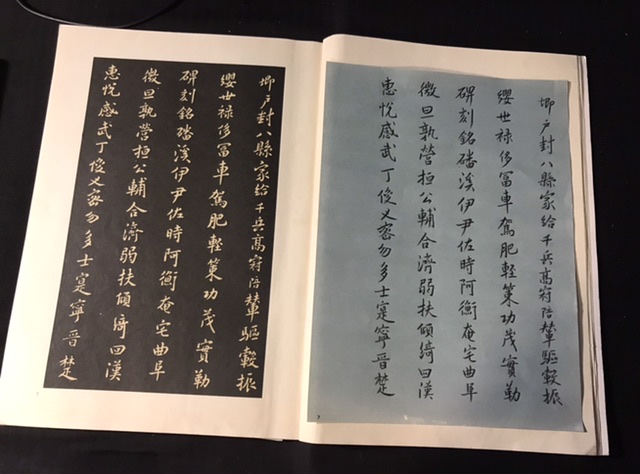 卿户封八縣家給千兵高冠陪輦驅轂振
纓世禄侈冨車駕肥輕策功茂實勒
碑刻銘磻溪伊尹佐時阿衡奄宅曲阜
微旦孰營桓公輔合濟弱扶傾綺回漢
惠悦感武丁俊乂密勿多士寔寧晉楚
卿户封八縣家給千兵高冠陪輦驅轂振
纓世禄侈冨車駕肥輕策功茂實勒
碑刻銘磻溪伊尹佐時阿衡奄宅曲阜
微旦孰營桓公輔合濟弱扶傾綺回漢
惠悦感武丁俊乂密勿多士寔寧晉楚